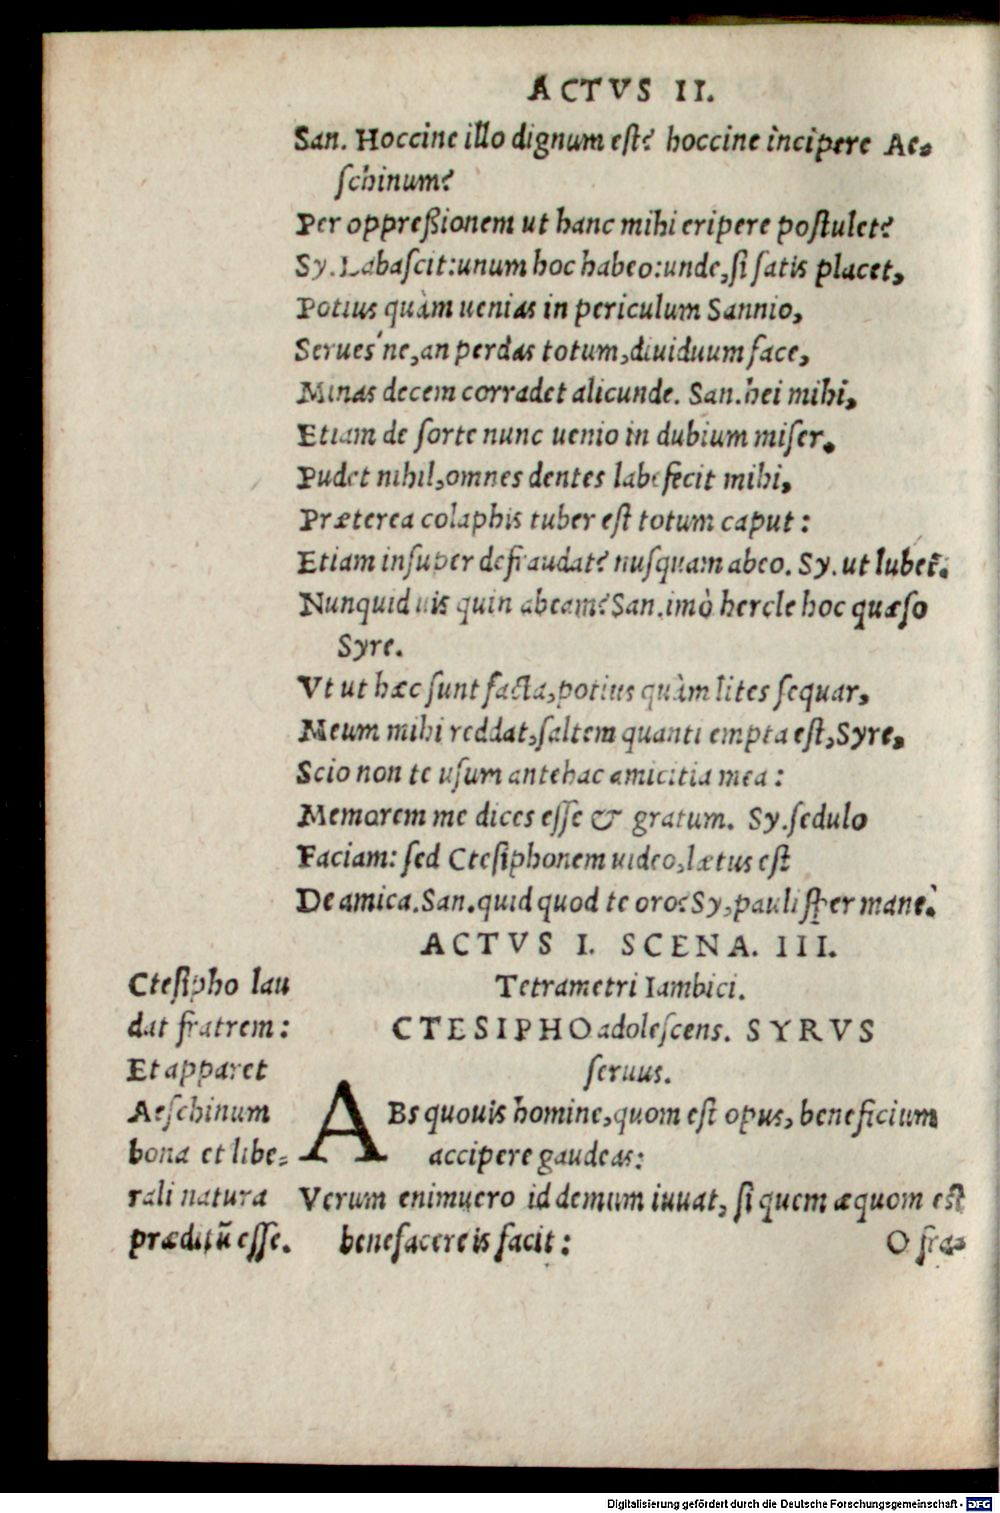 ACTVS II.
San. Hoccine illo dignum est? hoccine incipere Ae-
schinum?
Per oppreßionem ut hanc mihi eripere postulet?
Sy. Labascit: unum hoc habeo: unde, si satis placet,
Potius quàm uenias in periculum Sannio,
Serues'ne, an perdas totum, diuiduum face,
Minas decem corradet alicunde. San. hei mihi,
Etiam de sorte nunc uenio in dubium miser.
Pudet nihil, omnes dentes labefecit mihi,
Præterea colaphis tuber est totum caput:
Etiam insuper defraudat? nusquam abeo. Sy. ut lubet.
Nunquid uis quin abeam? San. imò hercle hoc quæso
Syre.
Vt ut hæc sunt facta, potius quàm lites sequar,
Meum mihi reddat, saltem quanti empta est, Syre,
Scio non te usum antehac amicitia mea:
Memorem me dices esse & gratum. Sy. sedulo
Faciam: sed Ctesiphonem uideo, lætus est
De amica. San. quid quod te oro? Sy, paulisper mane.
ACTVS I. SCENA. III.
Tetrametri Iambici.
CTESIPHO adolescens. SYRVS
seruus.
Ctesipho lau
dat fratrem:
Et apparet
Aeschinum
bona et libe-
rali natura
præditũ esse.
ABs quouis homine, quom est opus, beneficium
accipere gaudeas:
Verum enimuero id demum iuuat, si quem æquom est
benefacere is facit:
O fra-
Digitalisierung gefördert durch die Deutsche Forschungsgemeinschaft - DFG